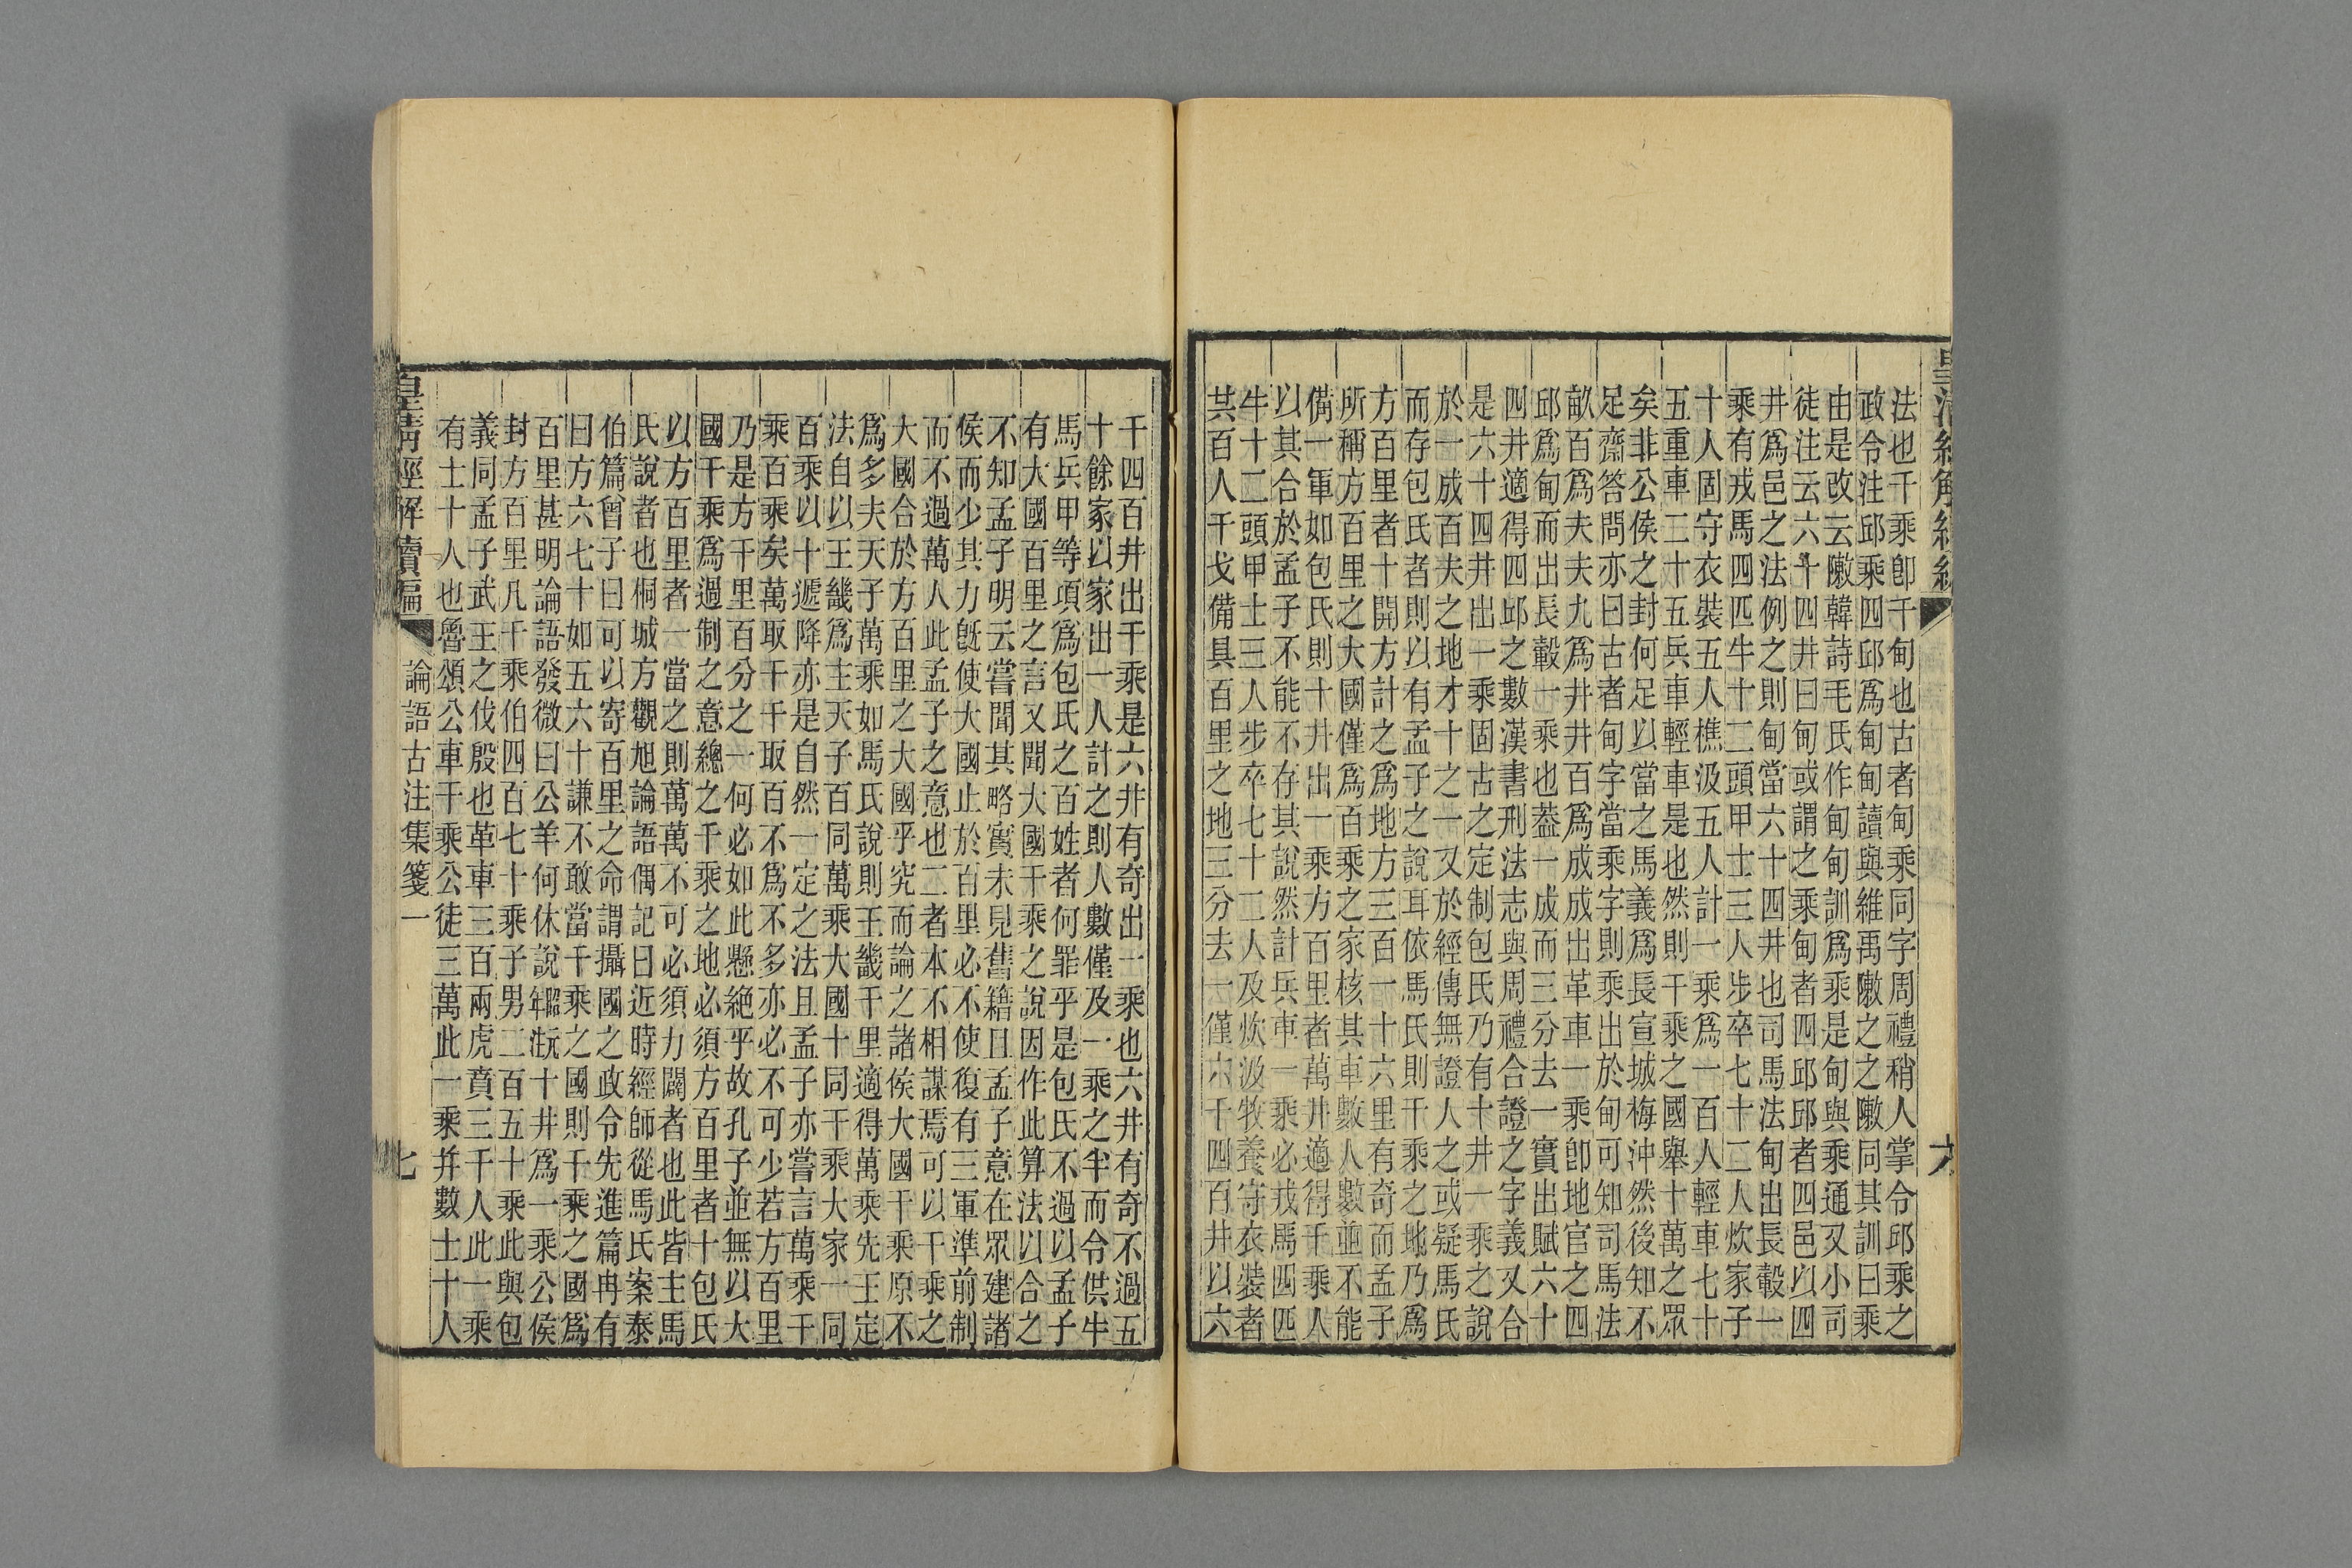 皇清經解續編 六
法也千乘卽千甸也古者甸乘同字周禮稍人掌令邱乘之
政令注邱乘四邱爲甸甸讀與維禹敶之之敶同其訓曰乘
由是改云敶韓詩毛氏作甸甸訓爲乘是甸與乘通又小司
徒注云六十四井曰甸或謂之乘甸者四邱邱者四邑以四
井爲邑之法例之則甸當六十四井也司馬法甸出長轂一
乘有戎馬四匹牛十二頭甲士三人步卒七十二人炊家子
十人固守衣裝五人樵汲五人計一乘爲一百人輕車七十
五重車二十五兵車輕車是也然則千乘之國舉十萬之眾
矣非公侯之封何足以當之馬義爲長宣城梅沖然後知不
足齋答問亦曰古者甸字當乘字則乘出於甸可知司馬法
畝百爲夫夫九爲井井百爲成成出革車一乘卽地官之四
邱爲甸而出長轂一乘也葢一成而三分去一實出賦六十
四井適得四邱之數漢書刑法志與周禮合證之字義又合
是六十四井出一乘固古之定制包氏乃有十井一乘之說
於一成百夫之地才十之一又於經傳無證人之或疑馬氏
而存包氏者則以有孟子之說耳依馬氏則千乘之地乃爲
方百里者十開方計之爲地方三百一十六里有奇而孟子
所稱方百里之大國僅爲百乘之家核其車數人數並不能
備一軍如包氏則十井出一乘方百里者萬井適得千乘人
以其合於孟子不能不存其說然計兵車一乘必戎馬四匹
牛十二頭甲士三人步卒七十二人及炊汲牧養守衣裝者
共百人干戈備具百里之地三分去一僅六千四百井以六
千四百井出千乘是六井有奇出一乘也六井有奇不過五
十餘家以家出一人計之則人數僅及一乘之半而令供牛
馬兵甲等項爲包氏之百姓者何罪乎是包氏不過以孟子
有大國百里之言又聞大國千乘之說因作此算法以合之
不知孟子明云嘗聞其略實未見舊籍且孟子意在眾建諸
侯而少其力旣使大國止於百里必不使復有三軍準前制
而不過萬人此孟子之意也二者本不相謀焉可以千乘之
大國合於方百里之大國乎究而論之諸侯大國千乘原不
爲多夫天子萬乘如馬氏說則王畿千里適得萬乘先王定
法自以王畿爲主天子百同萬乘大國十同千乘大家一同
百乘以十遞降亦是自然一定之法且孟子亦嘗言萬乘千
乘百乘矣萬取千千取百不爲不多亦必不可少若方百里
乃是方千里百分之一何必如此懸絕乎故孔子並無以大
國千乘爲過制之意總之千乘之地必須方百里者十包氏
以方百里者一當之則萬萬不可必須力闢者也此皆主馬
氏說者也桐城方觀旭論語偶記曰近時經師從馬氏案泰
伯篇曾子曰可以寄百里之命謂攝國之政令先進篇冉有
曰方六七十如五六十謙不敢當千乘之國則千乘之國爲
百里甚明論語發微曰公羊何休說昭元年注十井爲一乘公侯
封方百里凡千乘伯四百七十乘子男二百五十乘此與包
義同孟子武王之伐殷也革車三百兩虎賁三千人此一乘
有士十人也魯頌公車千乘公徒三萬此一乘并數士十人
皇清經解續編 論語古注集箋一 七